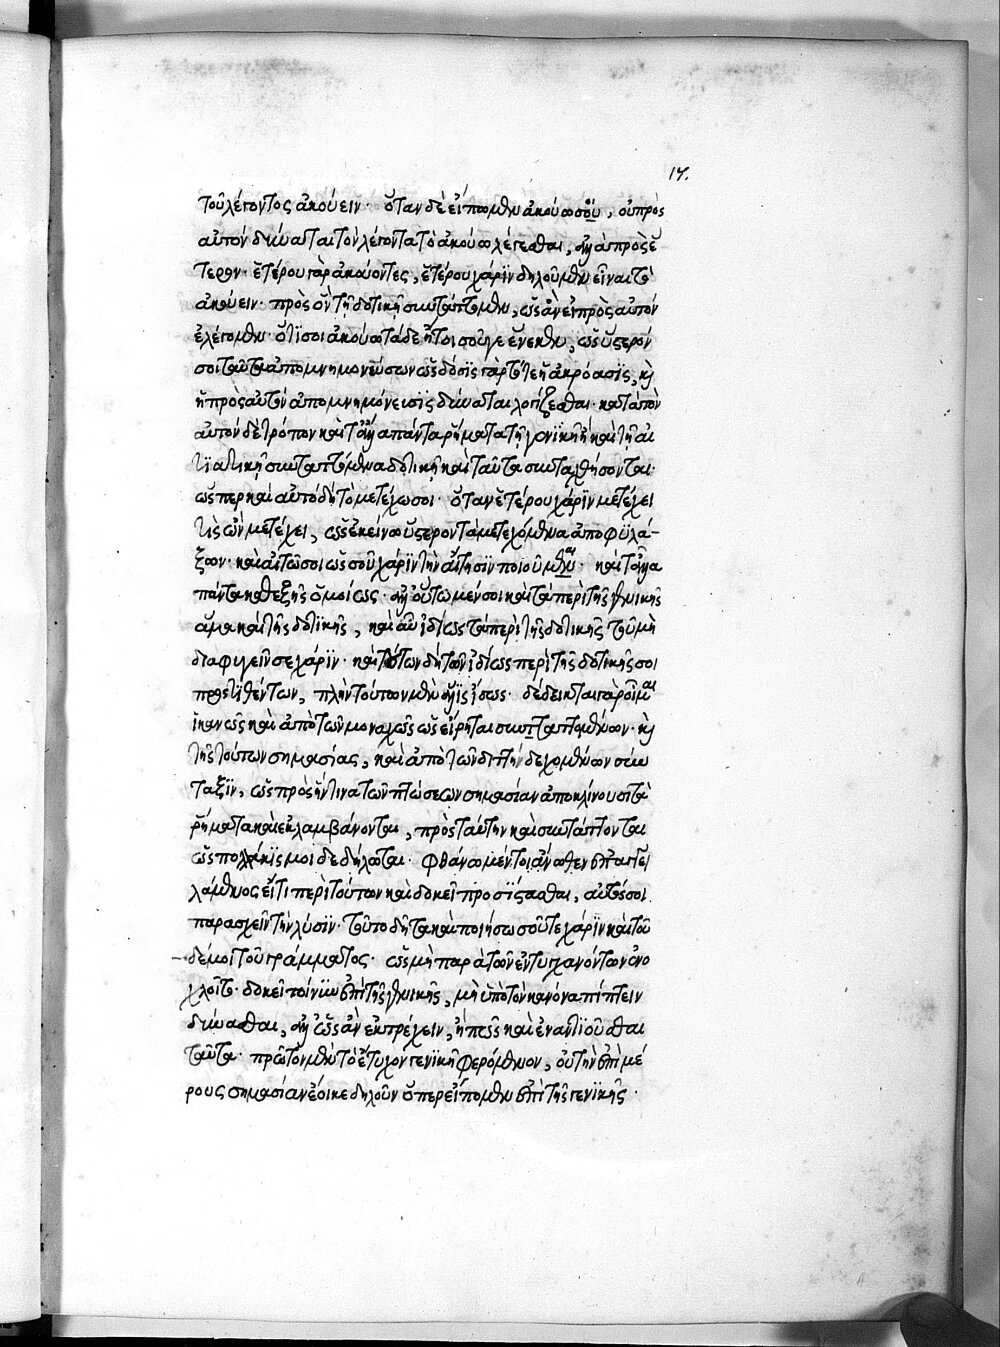 17.
τοῦ λέγοντος ἀκούειν· ὅταν δὲ εἴπωμεν ἀκούω σοῦ, οὐ πρὸς
αὐτὸν δύναται τὸν λέγοντα τὸ ἀκούω λέγεσθαι, ἀλλὰ πρὸς ἕ
τερον· ἑτέρου γὰρ ἀκούοντες, ἑτέρου χάριν δηλοῦμεν εἶναι τὸ
ἀκούειν· πρὸς ὃν τῇ δοτικῇ συντάττομεν, ὡς ἂν εἰ πρὸς αὐτὸν
ἐλέγομεν· ὅτι σοὶ ἀκούω τάδε ἤτοι σοῦ γε ἕνεκεν, ὡς ὕστερόν
σοι ταῦτα ἀπομνημονεύσων ὡς δόσις γάρ τίς ἡ ἀκρόασις, καὶ
ἡ πρὸς αὐτὸν ἀπομνημόνευσις δύναται λογίζεσθαι· κατὰ τὸν
αὐτὸν δὲ τρόπον καὶ τἄλλα πάντα ῥήματα τῇ γενικῇ ἢ καὶ τῇ αἰ
τιατικῇ συνταττόμενα δοτικῇ καὶ ταῦτα συνταχθήσονται·
ὥσπερ καὶ αὐτὸ δὴ τὸ μετέχω σοι· ὅταν ἑτέρου χάριν μετέχει
τις ὧν μετέχει, ὡς ἐκείνω ὕστερον τὰ μετεχόμενα ἀποφυλά-
ξων· καὶ αἰτῶ σοι ὡς σοῦ χάριν τὴν αἴτησιν ποιούμενος· καὶ τἄλλα
πάντα καθεξῆς ὁμοίως· ἀλλ' οὕτω μέν σοι καὶ τὰ περὶ τῆς γενικῆς
ἅμα καὶ τῆς δοτικῆς, καὶ αὖ ἰδίως τὰ περὶ τῆς δοτικῆς τοῦ μὴ
διαφυγεῖν σε χάριν· καὶ τούτων δὴ τῶν ἰδίως περὶ τῆς δοτικῆς σοι
προστιθέντων, πλὴν τούτων μὲν ἅλις ἴσως· δέδεικται γὰρ οἶμαι
ἱκανῶς καὶ ἀπὸ τῶν μοναχῶς ὡς εἴρηται συνταττομένων· καὶ
τῆς τούτων σημασίας, καὶ ἀπὸ τῶν διττὴν δεχομένων σύν
ταξιν, ὡς πρὸς ἥντινα τῶν πτώσεων σημασίαν ἀποκλίνουσι τὰ
ῥήματα καὶ ἐκλαμβάνονται, πρὸς ταύτην καὶ συντάττονται
ὡς πολλάκις μοι δεδήλωται· φθάνω μέντοι ἄνωθεν ἐπαγγει
λάμενος εἴ τι περὶ τούτων καὶ δοκεῖ προσίστασθαι, αὐτός σοι
παρασχεῖν τὴν λύσιν· τοῦτο δῆτα καὶ ποιήσω σοῦ τε χάριν καὶ τοῦ
δέ μοι τοῦ γράμματος· ὡς μὴ παρὰ τῶν ἐντυγχανόντων ἐνο
χλοῖτο· δοκεῖ τοίνυν ἐπὶ τῆς γενικῆς, μὴ ὑπὸ τὸν κανόνα πίπτειν
δύνασθαι, ἀλλ' ὡς ἂν ἐκτρέχειν, ἤ πως καὶ ἐναντιοῦσθαι
ταῦτα· πρῶτον μὲν τὸ ἔτυχον γενικῇ φερόμενον, οὐ τὴν ἐπὶ μέ
ρους σημασίαν ἔοικε δηλοῦν ὅπερ εἴπομεν ἐπὶ τῆς γενικῆς·